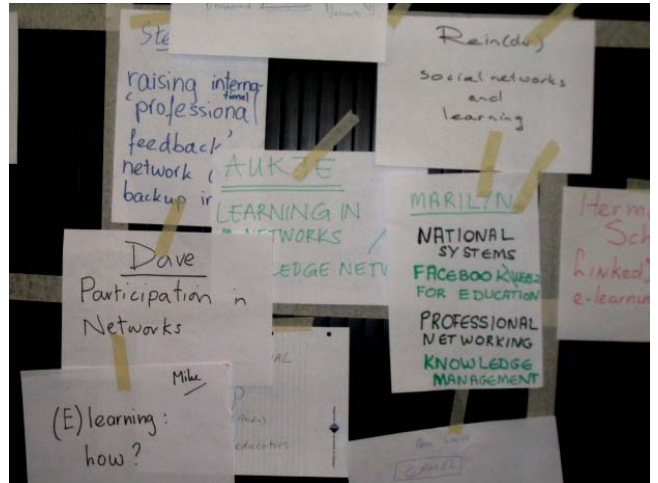 Ste
raising interna-
tional
'professional
feedback'
network
backup in
Rein(du)
social networks
and
learning
AUKJE
LEARNING IN
NETWORKS
EDGE NETW
MARILYN
NATIONAL
SYSTEMS
FACEBOOK
FOR EDUCATION
PROFESSIONAL
NETWORKING
KNOWLEDGE
MANAGEMENT
Herm
Sch
Linked
e-learnin
Dave
Participation in
Networks
Mike
(E) learning:
how?
educators